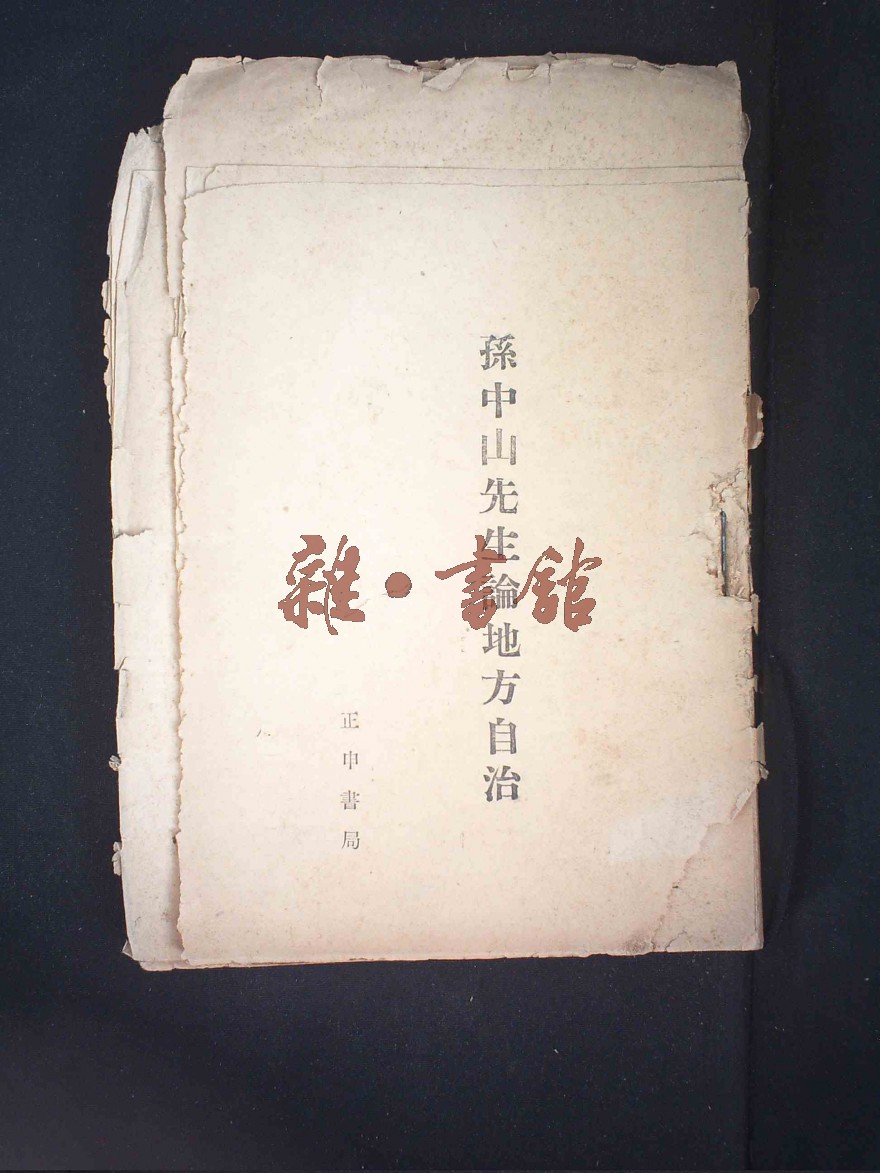 孫中山先生論地方自治
正中書局
雜·書館